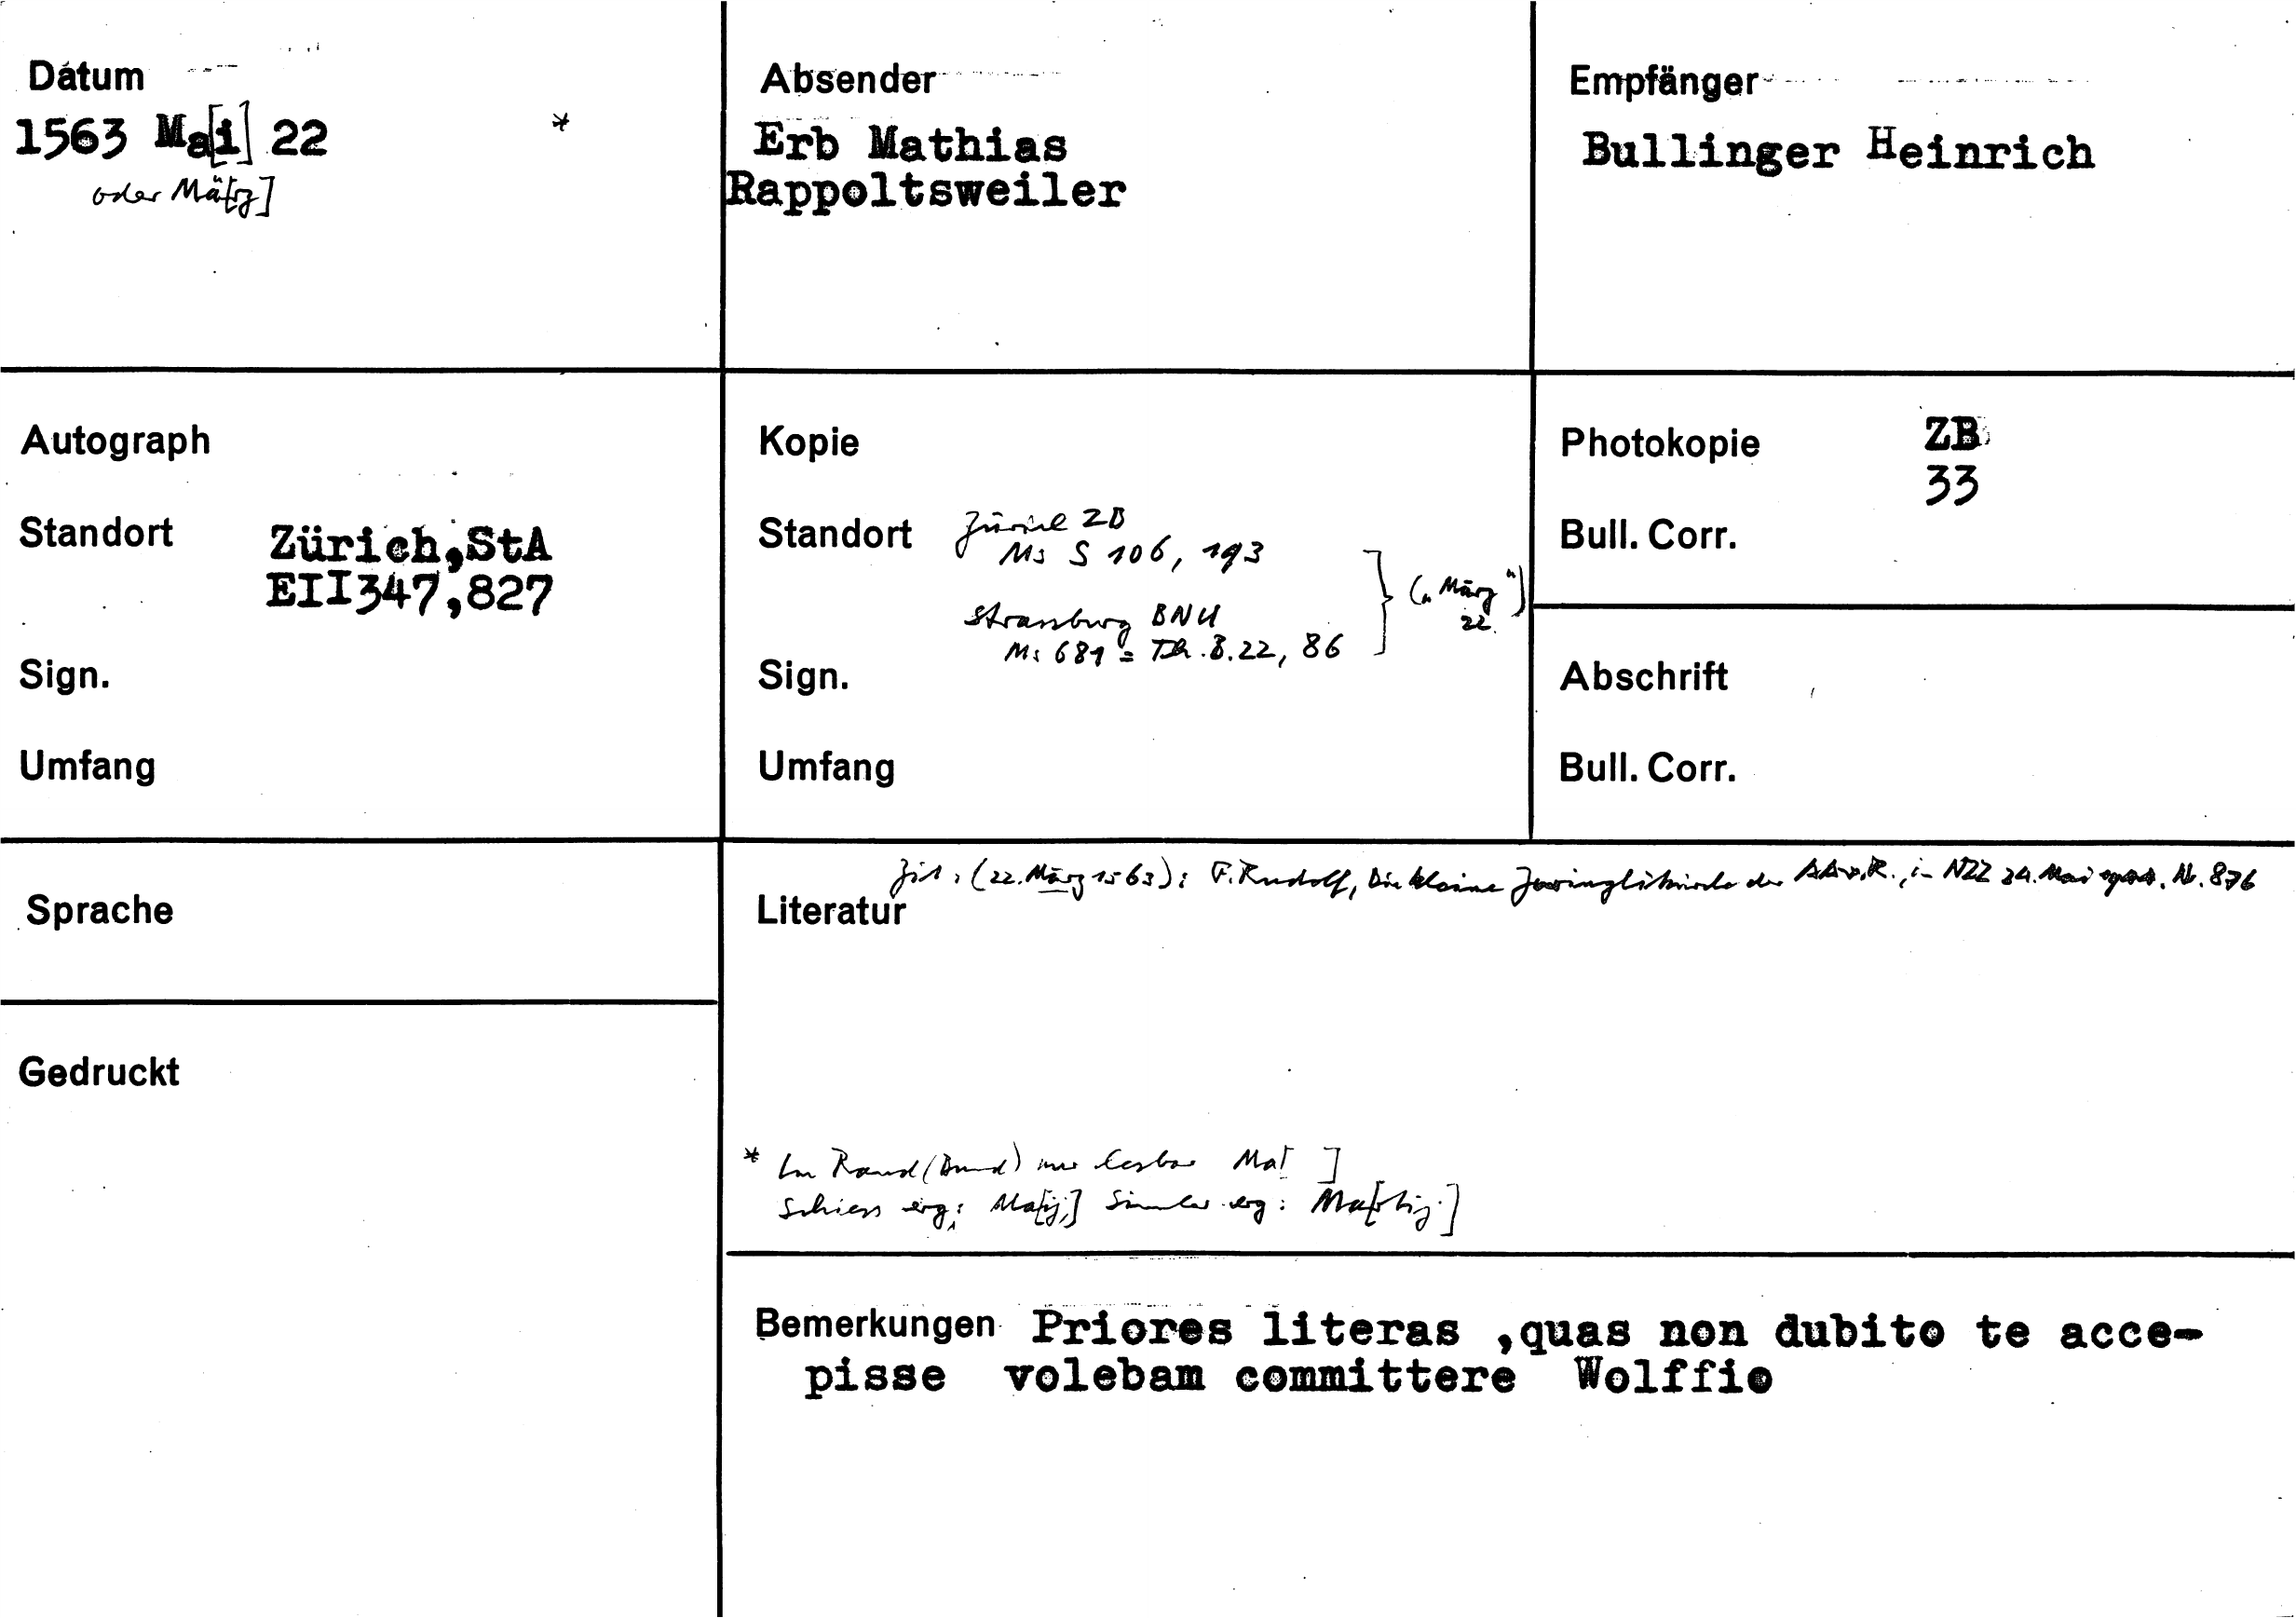 Datum
1563 Ma[i] 22 *
oder Mä[rz]
Absender
Erb Mathias
Rappoltsweiler
Empfänger
Bullinger Heinrich
Autograph
Standort Zürich,StA
EII347,827
Sign.
Umfang
Kopie
Standort Zürich ZB
Ms S 106, 193
Strassburg BNU
Ms 681 = Th.B.22, 86
("März"
22.)
Sign.
Umfang
Photokopie ZB
33
Bull. Corr.
Abschrift
Bull. Corr.
Sprache
Zit. (22. März 1563): F. Rudolf, Die kleine Zwinglikirche der in NZZ 24. Mai Nr. 876
Literatur
Gedruckt
* Im Rand (Bund) nur lesbar Ma ]
Schiess erg: Ma[ij] Simler erg: Ma[rtij]
Bemerkungen Priores literas ,quas non dubito te acce-
pisse volebam committere Wolffio